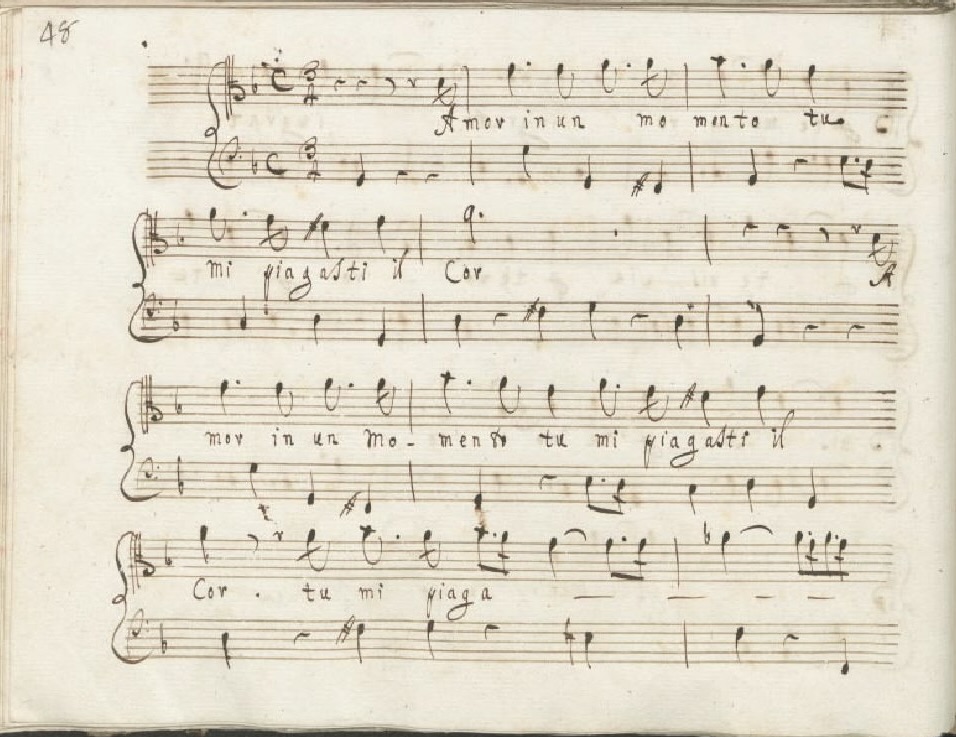 48
Amor in un mo mento tu
mi piagasti il Cor A
mor in un Mo- mento tu mi piagasti il
Cor. tu mi piaga